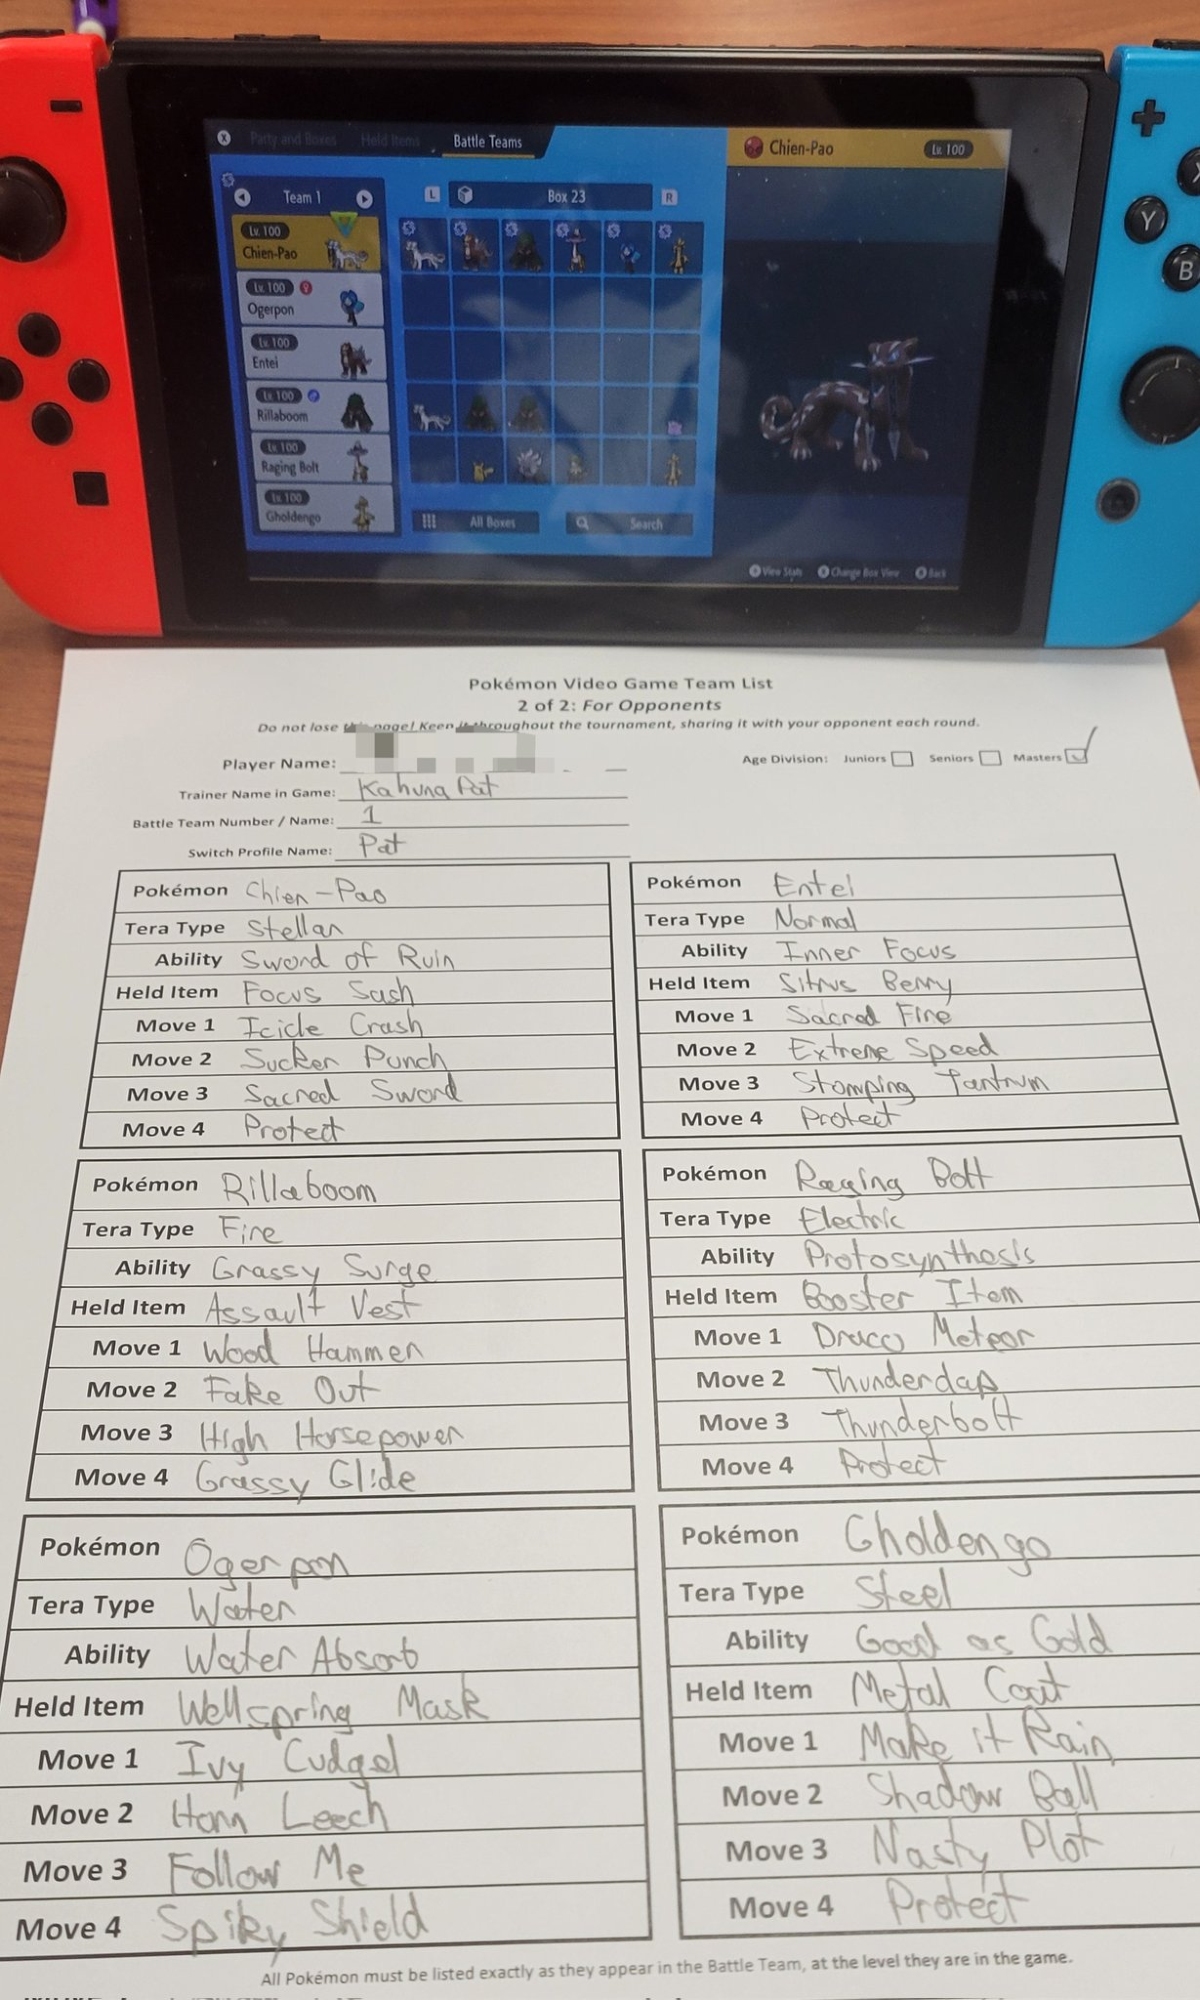 Party and Boxes Held Items Battle Teams
Chien-Pao Lv. 100
Team 1
L Box 23 R
Lv. 100
Chien-Pao
Lv. 100
Ogerpon
Lv. 100
Entei
Lv. 100
Rillaboom
Lv. 100
Raging Bolt
Lv. 100
Gholdengo
All Boxes Search
View Stats Change Box View Back
Y
B
Pokémon Video Game Team List
2 of 2: For Opponents
Do not lose this page! Keep it throughout the tournament, sharing it with your opponent each round.
Player Name:
Age Division: Juniors Seniors Masters
Trainer Name in Game: Kahuna Pat
Battle Team Number / Name: 1
Switch Profile Name: Pat
Pokémon Chien-Pao
Tera Type Stellar
Ability Sword of Ruin
Held Item Focus Sash
Move 1 Icicle Crash
Move 2 Sucker Punch
Move 3 Sacred Sword
Move 4 Protect
Pokémon Entei
Tera Type Normal
Ability Inner Focus
Held Item Sitrus Berry
Move 1 Sacred Fire
Move 2 Extreme Speed
Move 3 Stomping Tantrum
Move 4 Protect
Pokémon Rillaboom
Tera Type Fire
Ability Grassy Surge
Held Item Assault Vest
Move 1 Wood Hammer
Move 2 Fake Out
Move 3 High Horsepower
Move 4 Grassy Glide
Pokémon Raging Bolt
Tera Type Electric
Ability Protosynthesis
Held Item Booster Item
Move 1 Draco Meteor
Move 2 Thunderclap
Move 3 Thunderbolt
Move 4 Protect
Pokémon Ogerpon
Tera Type Water
Ability Water Absorb
Held Item Wellspring Mask
Move 1 Ivy Cudgel
Move 2 Horn Leech
Move 3 Follow Me
Move 4 Spiky Shield
Pokémon Gholdengo
Tera Type Steel
Ability Good as Gold
Held Item Metal Coat
Move 1 Make it Rain
Move 2 Shadow Ball
Move 3 Nasty Plot
Move 4 Protect
All Pokémon must be listed exactly as they appear in the Battle Team, at the level they are in the game.